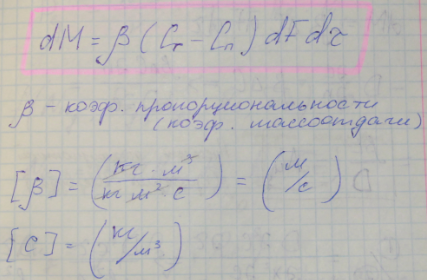 dM = β (Cг - Cп) dF dτ
β - коэф. пропорциональности
(коэф. массоотдачи)
[β] = (кг · м³ / кг м² с) = (м/с)
[c] = (кг/м³)